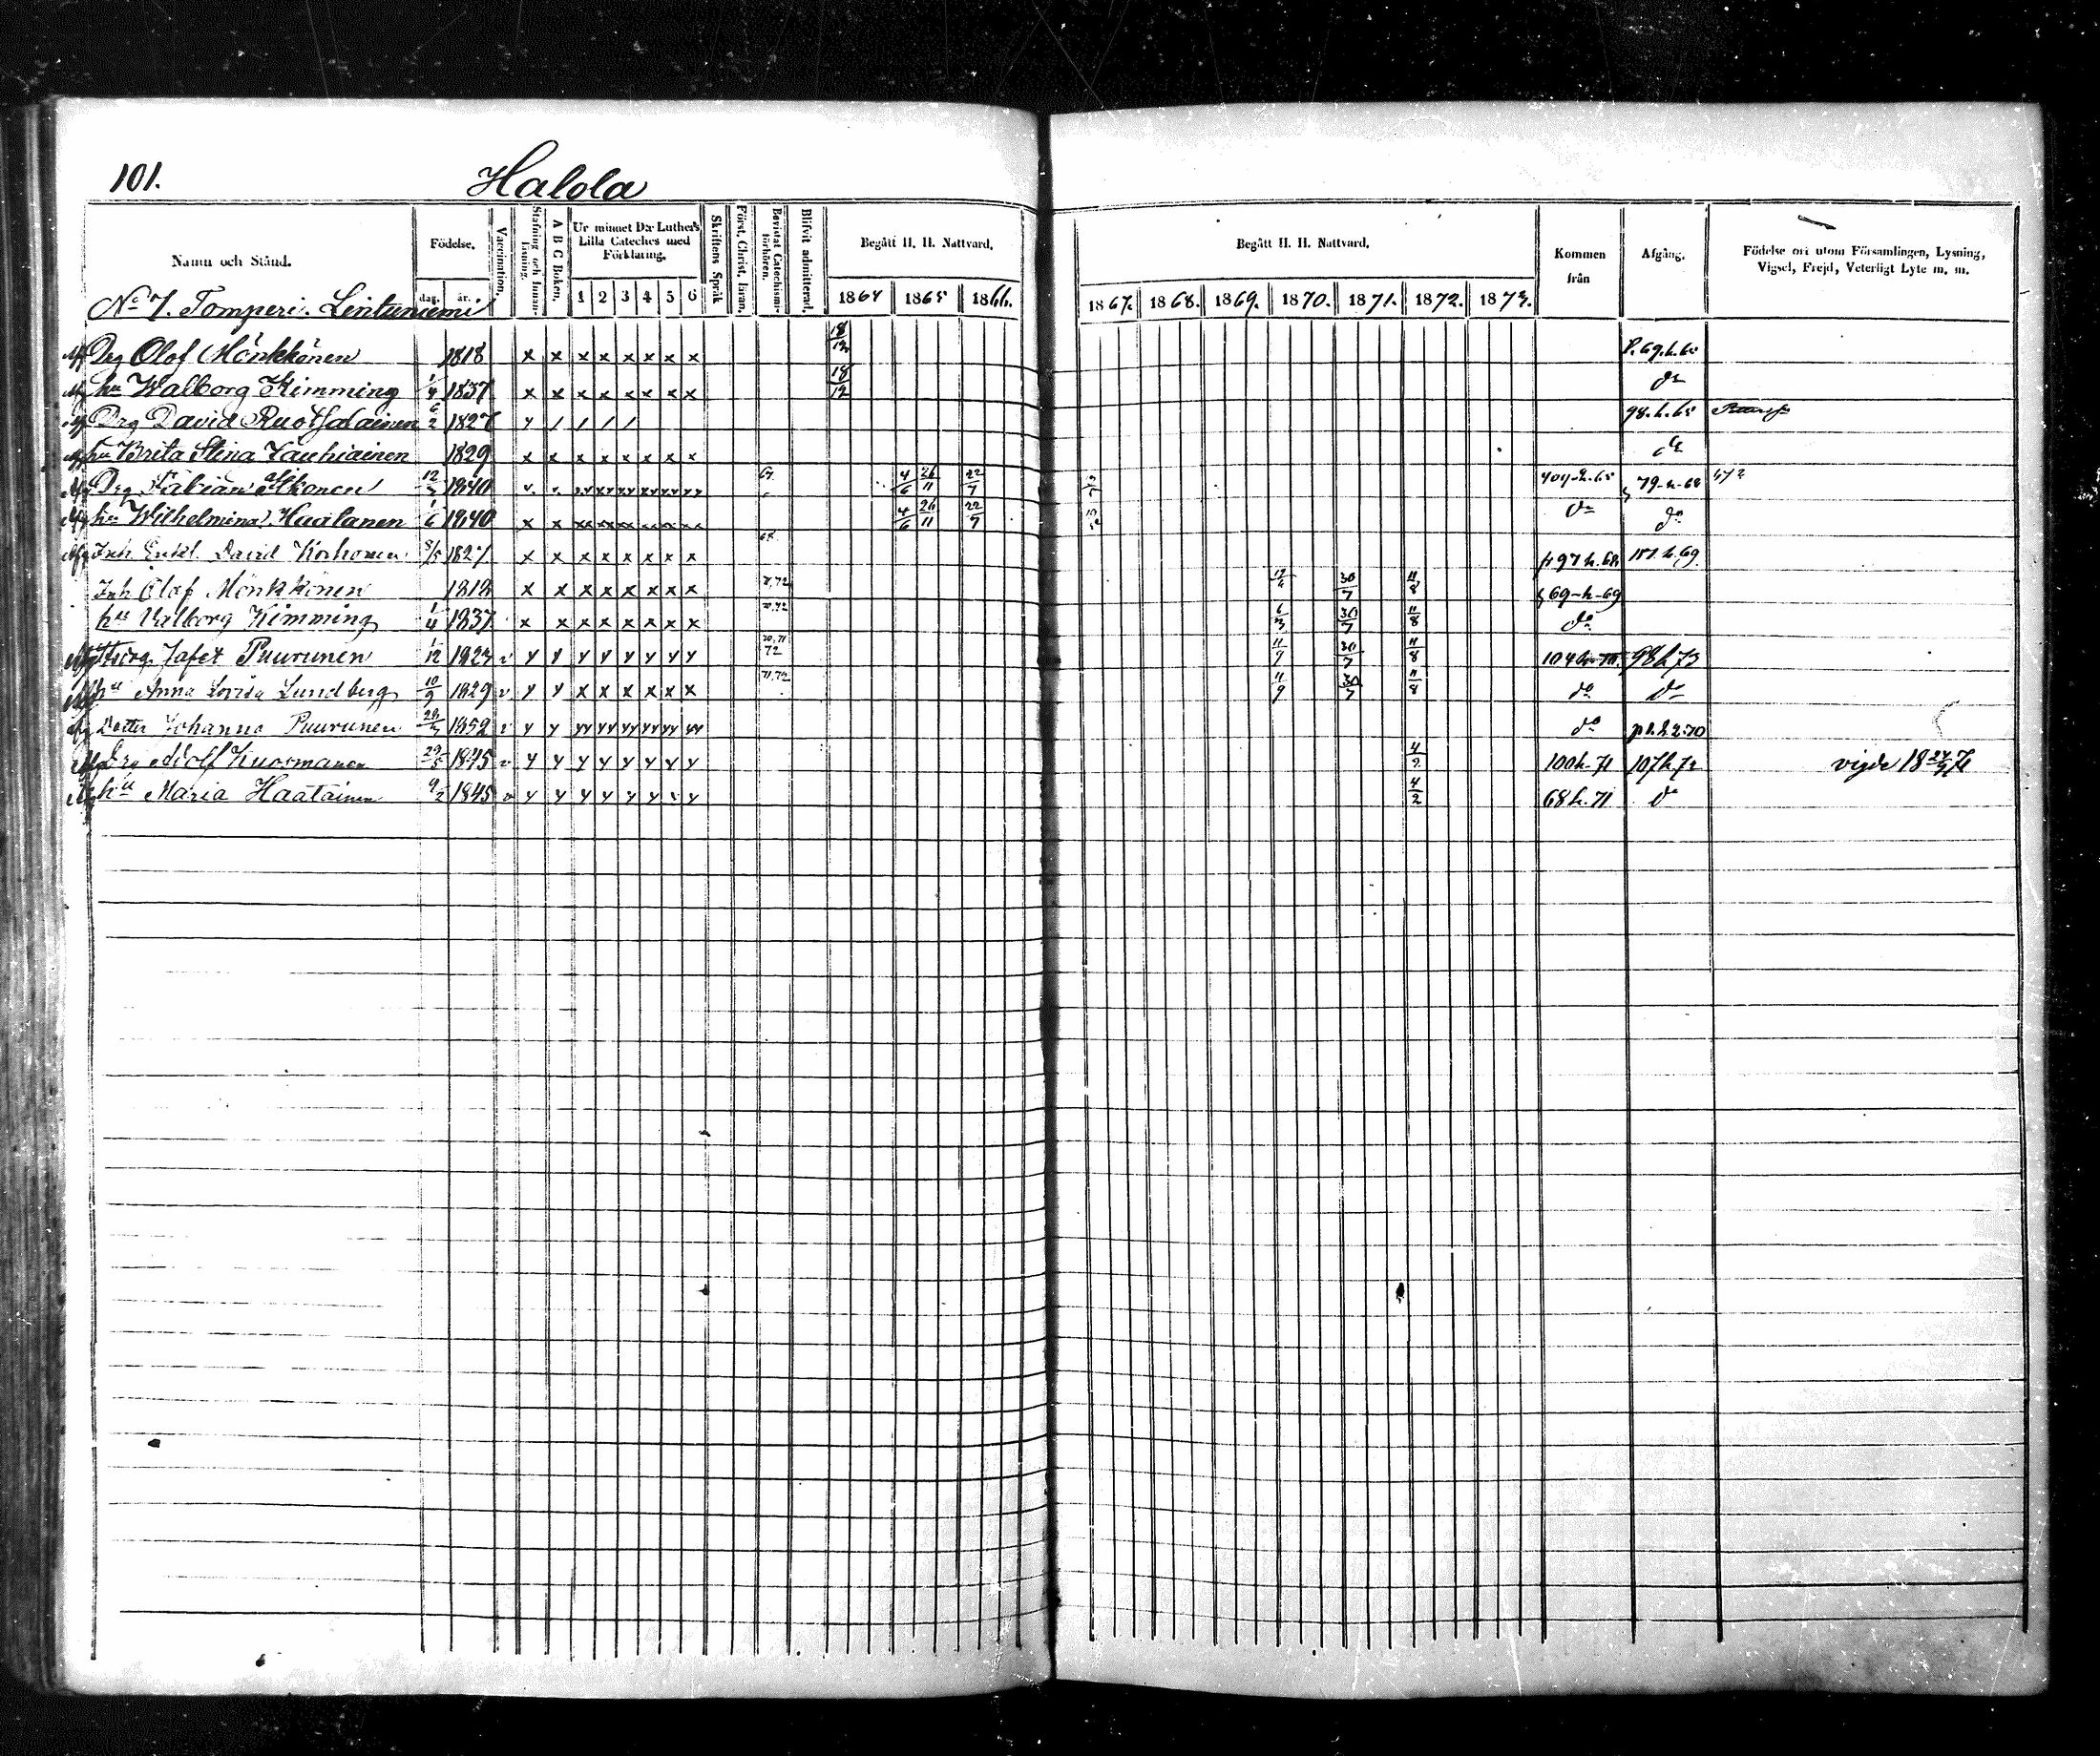 101. Halola
Namn och Stånd. Födelse. dag. år. Vaccination. Stafning och Innanläsning. A B C Boken. Ur minnet D:r Luther's Lilla Cateches med Förklaring. 1 2 3 4 5 6 Skriftens Språk Först. Christ. läran. Bevistat Catechismiförhören. Blifvit admitterad. Begått H. H. Nattvard. 1864 1865 1866. Begått H. H. Nattvard. 1867. 1868. 1869. 1870. 1871. 1872. 1873. Kommen från Afgång. Födelse ort utom Församlingen, Lysning, Vigsel, Frejd, Veterligt Lyte m. m.
No 7. Tomperi. Lintuniemi
Drg Olof Mönkkönen 1818 x x x x x x x x 18/12 P. 69.h.65
hu Walborg Kimming 1/4 1837 x x x x x x x x 18/12 do
Drg David Ruotsalainen 6/2 1827 y / / / / 98.h.65
hu Brita Stina Vauhiainen 1829 x x x x x x x x do
Drg Fabian Ikonen 1840 4/6 26/11 22/7 404-h.65 79-h-68
hu Wilhelmina Huttunen 1/6 1840 x x xx xx xx 4/6 26/11 22/7 do do
Inh. Enkl. David Korhonen 8/5 1827 x x x x x x x x 497 h.68 h.69
Inh Olof Mönkkönen 1818 x x x x x x x x 71,72 30/7 11/8 69-h-69
hu Valborg Kimming 1/4 1837 x x x x x x x x 6/3 30/7 11/8 do
Jafet Puurunen 1/12 1827 v y y y y y y y y 70,71 72 11/9 30/7 11/8 104 h 70 98h73
hu Anna Lovisa Lundberg 10/9 1829 v y y x x x x x x 71,72 11/9 30/7 11/8 do do
Dotter Johanna Puurunen 1852 v y y yy yy yy yy yy yy do
Drg Adolf Kuosmanen 29/5 1845 v y y y y y y y y 4/2 100h.71 107h72 vigde
hu Maria Haatainen 9/2 1845 v y y y y y y y y 4/2 68h.71 do